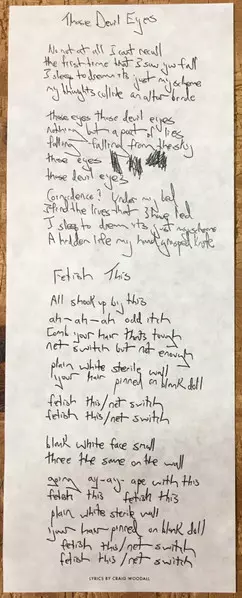 Those Devil Eyes
No not at all I cant recall
the first time that I saw you fall
I sleep to dream its just my scheme
my thoughts collide an altar bride
those eyes those devil eyes
nothing but a pact of lies
falling falling from the sky
those eyes
those devil eyes
Coincidence? Under my bed
I find the lives that I have led
I sleep to dream its just my scheme
A hidden life my hand grasped knife
Fetish This
All shook up by this
ah-ah-ah odd itch
Comb your hair thats tough
net switch but not enough
plain white sterile wall
your hair pinned on blank doll
fetish this/net switch
fetish this/net switch
blank white face small
three the same on the wall
going ay-ay-ape with this
fetish this fetish this
plain white sterile wall
your hair pinned on blank doll
fetish this/net switch
fetish this/net switch
LYRICS BY CRAIG WOODALL